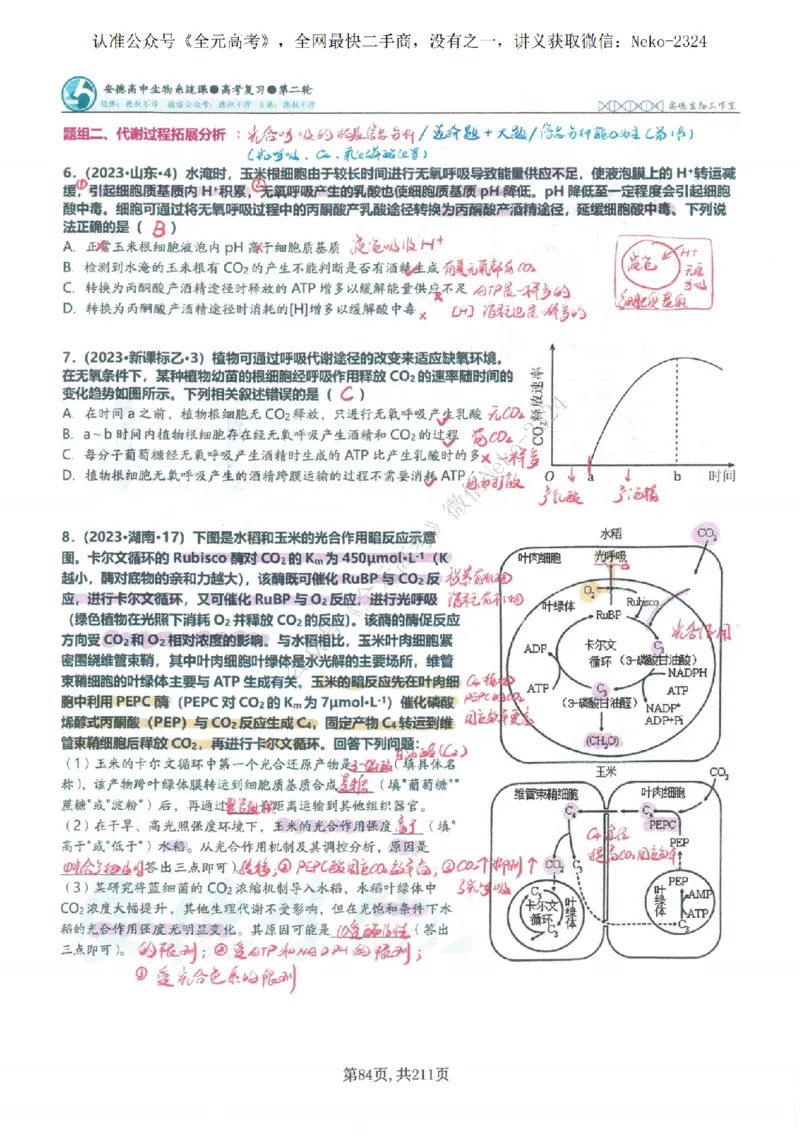 认准公众号《全元高考》，全网最快二手商，没有之一，讲义获取微信：Neko-2324
安德高中生物系统课●高考复习●第二轮
微博：德叔不得 微信公众号：德叔不得 B站：德叔不得
安德生物工作室
题组二、代谢过程拓展分析
6．(2023·山东·4）水淹时，玉米根细胞由于较长时间进行无氧呼吸导致能量供应不足，使液泡膜上的 H⁺转运减
缓，①引起细胞质基质内 H⁺积累，②无氧呼吸产生的乳酸也使细胞质基质 pH 降低。pH 降低至一定程度会引起细胞
酸中毒。细胞可通过将无氧呼吸过程中的丙酮酸产乳酸途径转换为丙酮酸产酒精途径，延缓细胞酸中毒。下列说
法正确的是（ B ）
A．正常玉米根细胞液泡内 pH 高于细胞质基质 液泡吸收H⁺
B．检测到水淹的玉米根有 CO₂ 的产生不能判断是否有酒精生成 有氧无氧都有CO₂
C．转换为丙酮酸产酒精途径时释放的 ATP 增多以缓解能量供应不足 ATP是一样多的
D．转换为丙酮酸产酒精途径时消耗的[H]增多以缓解酸中毒 [H] 消耗也是一样多的
液泡
H⁺
细胞质基质
7．(2023·新课标乙·3）植物可通过呼吸代谢途径的改变来适应缺氧环境。
在无氧条件下，某种植物幼苗的根细胞经呼吸作用释放 CO₂ 的速率随时间的
变化趋势如图所示。下列相关叙述错误的是（ C ）
A．在时间 a 之前，植物根细胞无 CO₂ 释放，只进行无氧呼吸产生乳酸 无CO₂
B．a～b 时间内植物根细胞存在经无氧呼吸产生酒精和 CO₂ 的过程 有CO₂
C．每分子葡萄糖经无氧呼吸产生酒精时生成的 ATP 比产生乳酸时的多 一样多
D．植物根细胞无氧呼吸产生的酒精跨膜运输的过程不需要消耗 ATP 自由扩散
CO₂释放速率
O a b 时间
产乳酸 产酒精
8．(2023·湖南·17）下图是水稻和玉米的光合作用暗反应示意
图。卡尔文循环的 Rubisco 酶对 CO₂ 的 Kₘ为 450μmol·L⁻¹（K
越小，酶对底物的亲和力越大），该酶既可催化 RuBP 与 CO₂ 反
应，进行卡尔文循环，又可催化 RuBP 与 O₂ 反应，进行光呼吸
（绿色植物在光照下消耗 O₂ 并释放 CO₂ 的反应）。该酶的酶促反应
方向受 CO₂ 和 O₂ 相对浓度的影响。与水稻相比，玉米叶肉细胞紧
密围绕维管束鞘，其中叶肉细胞叶绿体是水光解的主要场所，维管
束鞘细胞的叶绿体主要与 ATP 生成有关。玉米的暗反应先在叶肉细
胞中利用 PEPC 酶（PEPC 对 CO₂ 的 Kₘ为 7μmol·L⁻¹）催化磷酸
烯醇式丙酮酸（PEP）与 CO₂ 反应生成 C₄，固定产物 C₄ 转运到维
管束鞘细胞后释放 CO₂，再进行卡尔文循环。回答下列问题：
（1）玉米的卡尔文循环中第一个光合还原产物是3-磷酸甘油醛(C₃)（填具体名
称），该产物跨叶绿体膜转运到细胞质基质合成蔗糖（填"葡萄糖""
蔗糖"或"淀粉"）后，再通过长距离运输到其他组织器官。
（2）在干旱、高光照强度环境下，玉米的光合作用强度高于（填"
高于"或"低于"）水稻。从光合作用机制及其调控分析，原因是
（答出三点即可）
（3）某研究将蓝细菌的 CO₂ 浓缩机制导入水稻，水稻叶绿体中
CO₂ 浓度大幅提升，其他生理代谢不受影响，但在光饱和条件下水
稻的光合作用强度无明显变化。其原因可能是①受酶活性（答出
三点即可）。的限制；②受ATP和NADPH的限制；
③受光合色素的限制
水稻
CO₂
叶肉细胞 光呼吸
O₂
叶绿体 RuBP Rubisco
光合作用
ADP 卡尔文循环 C₃（3-磷酸甘油酸）
NADPH
ATP C₃ ATP
（3-磷酸甘油醛） NADP⁺
ADP+Pi
(CH₂O)
玉米
CO₂
维管束鞘细胞 叶肉细胞
C₄ C₄
PEPC
PEP
CO₂ C₃
PEP
C₃ 卡尔文循环 C₃ 叶绿体
叶绿体 AMP
ATP
C₃
第84页，共211页